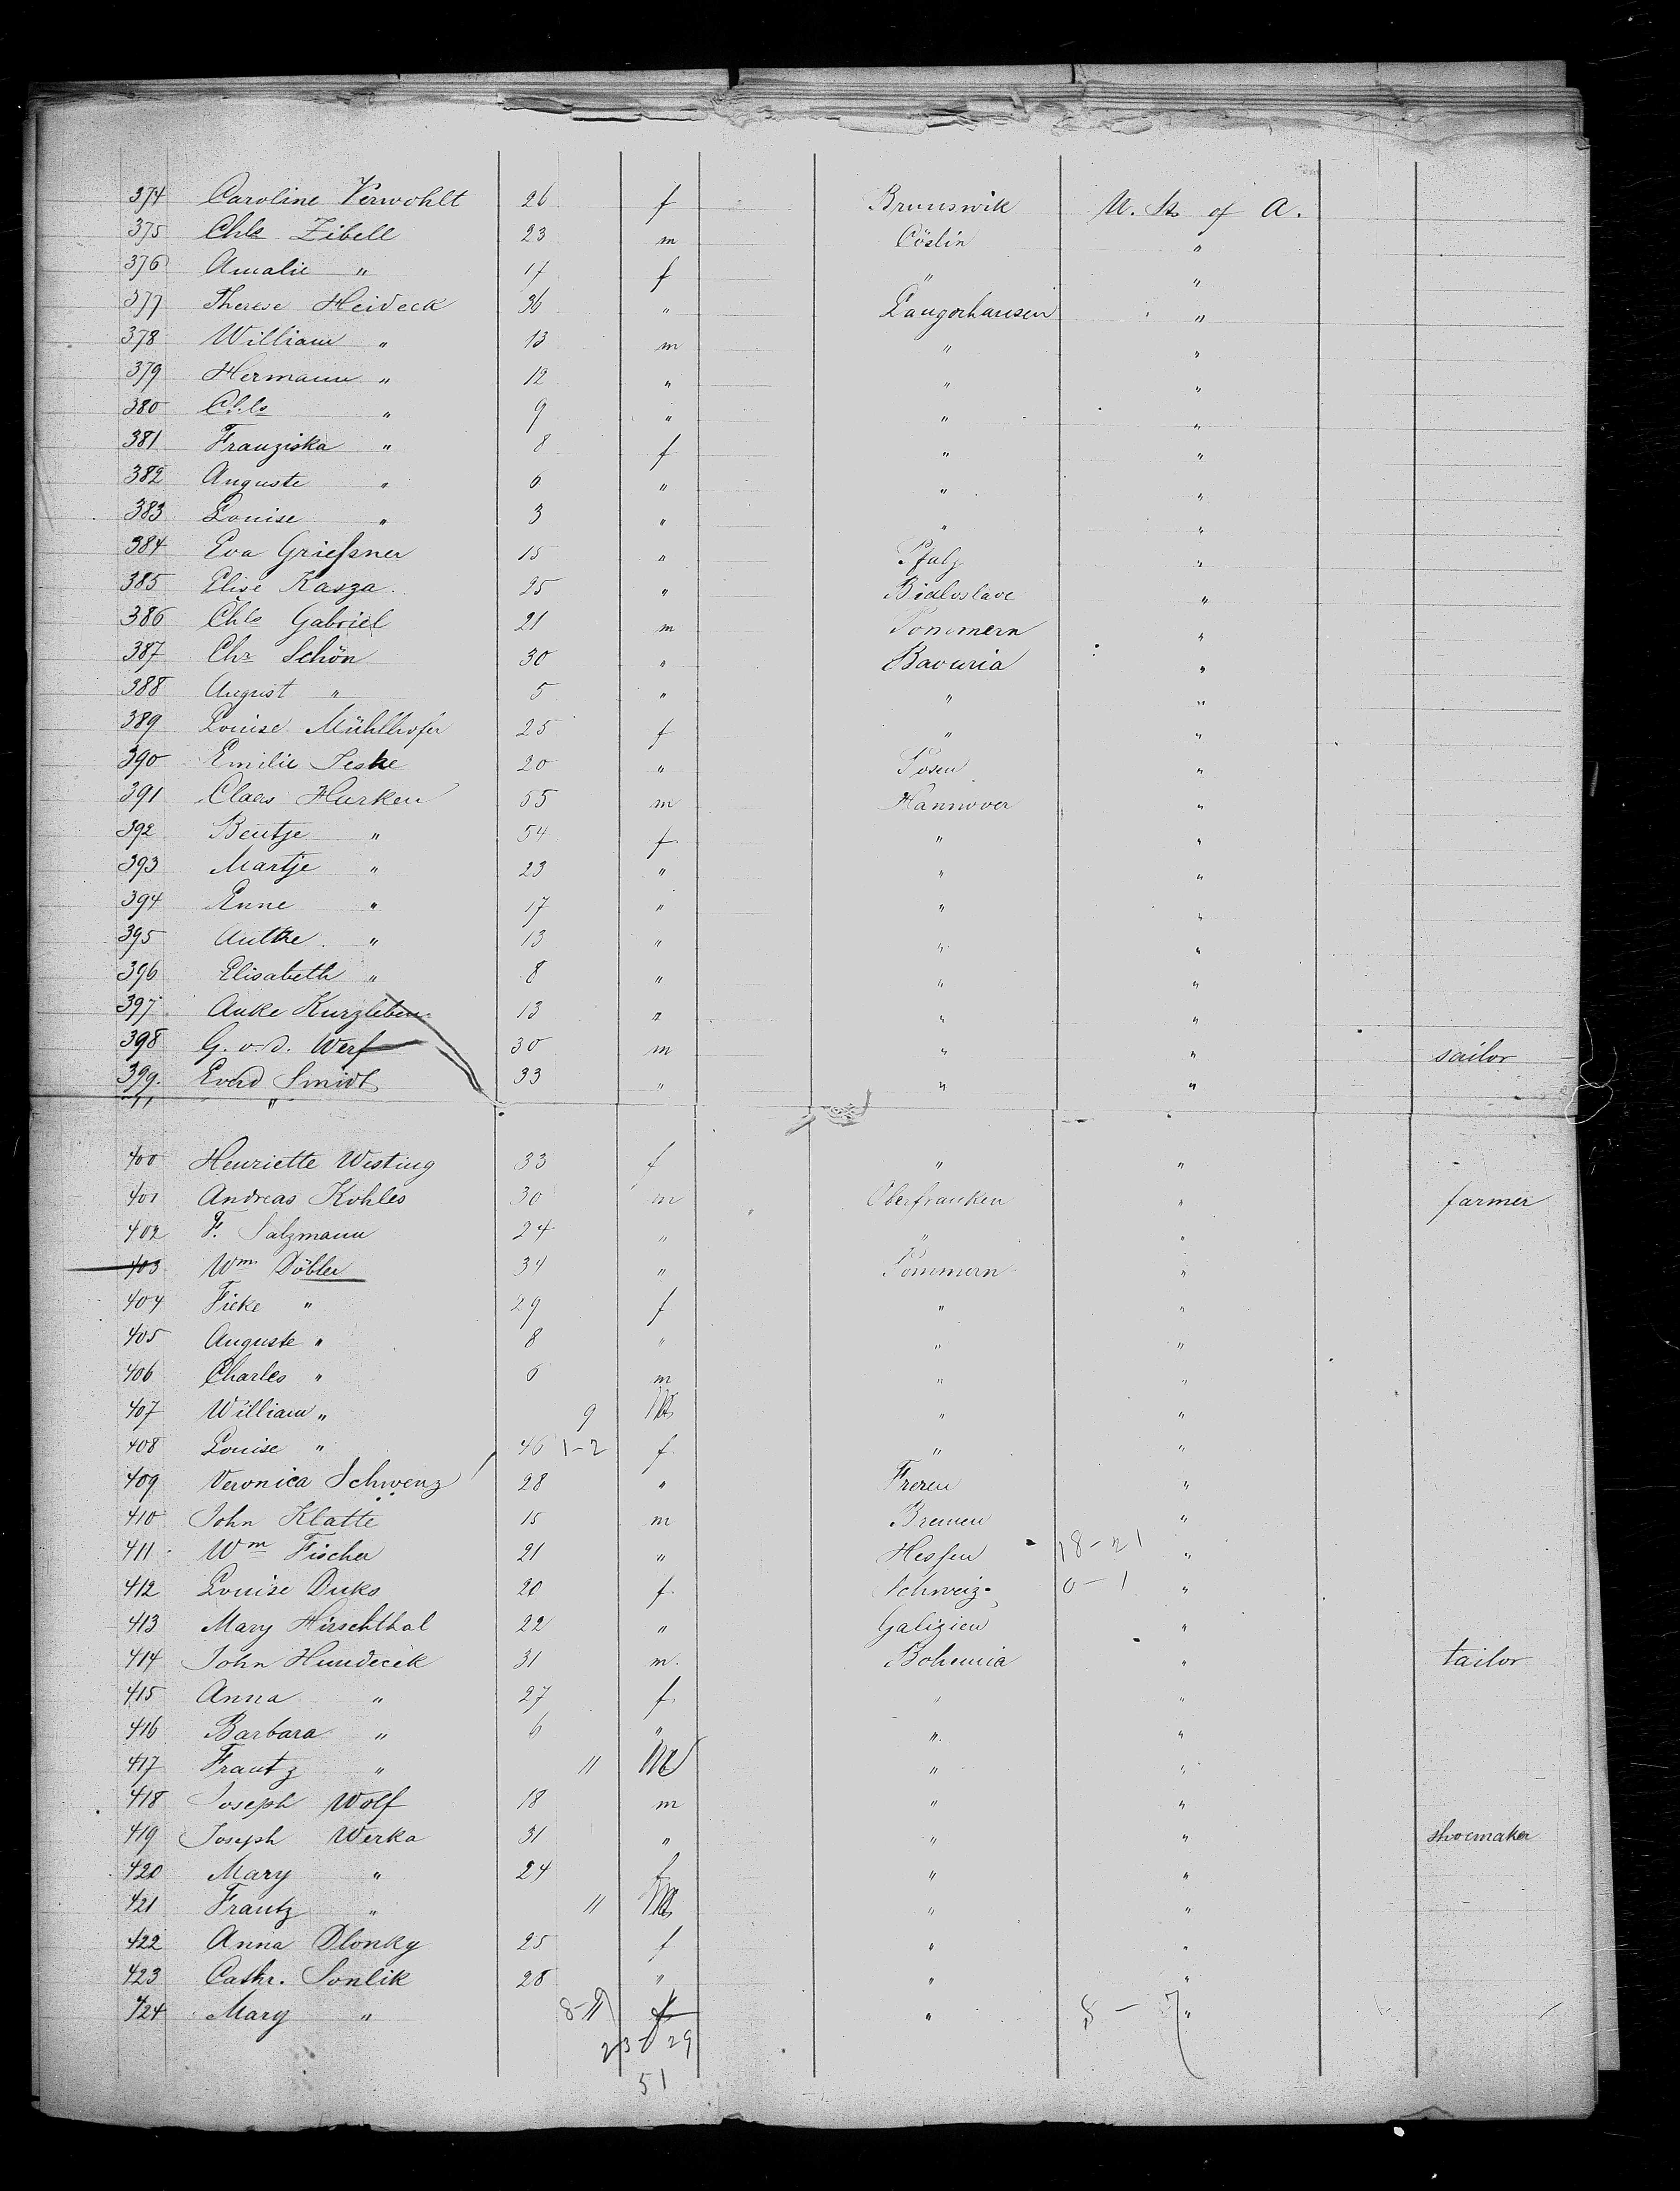 374 Caroline Verwohlt 26 f Brunswik U. Sts of A.
375 Chls Zibell 23 m Cöslin "
376 Amalie " 17 f " "
377 Therese Heideck 36 " Langerhausen "
378 William " 13 m " "
379 Hermann " 12 " " "
380 Chls " 9 " " "
381 Franziska " 8 f " "
382 Auguste " 6 " " "
383 Louise " 3 " " "
384 Eva Grießner 15 " Pfalz "
385 Elise Kasza 25 " Bialoslave "
386 Chls Gabriel 21 m Pommern "
387 Chr Schön 30 " Bavaria "
388 August " 5 " " "
389 Louise Mühlhofer 25 f " "
390 Emilie Jeske 20 " Posen "
391 Claas Harken 55 m Hannover "
392 Bentje " 54 f " "
393 Martje " 23 " " "
394 Enne " 17 " " "
395 Antke " 13 " " "
396 Elisabeth " 8 " " "
397 Anke Kurzleben 13 " " "
398 G. v. d. Werf 30 m " " sailor
399. Everd Smidt 33 " " "
400 Henriette Westing 33 f " "
401 Andreas Kohles 30 m Oberfranken " farmer
402 F. Salzmann 24 " " "
403 Wm Döbler 34 " Pommern "
404 Fieke " 29 f " "
405 Auguste " 8 " " "
406 Charles " 6 m " "
407 William " 9 " "
408 Louise " 46 1-2 f " "
409 Veronica Schwenz 28 " Freren "
410 John Klatte 15 m Bremen "
411 Wm Fischer 21 " Hessen 18-21 "
412 Louise Duks 20 f Schweiz 0-1 "
413 Mary Hirschthal 22 " Galizien "
414 John Hundecek 31 m. Bohemia " tailor
415 Anna " 27 f " "
416 Barbara " 6 " " "
417 Frantz " 11 m " "
418 Joseph Wolf 18 m " "
419 Joseph Werka 31 " " " shoemaker
420 Mary " 24 f " "
421 Frantz " 11 m " "
422 Anna Dlonky 25 f " "
423 Cathr. Sonlik 28 " " "
424 Mary " f " 8 - 7 "
23-29
51